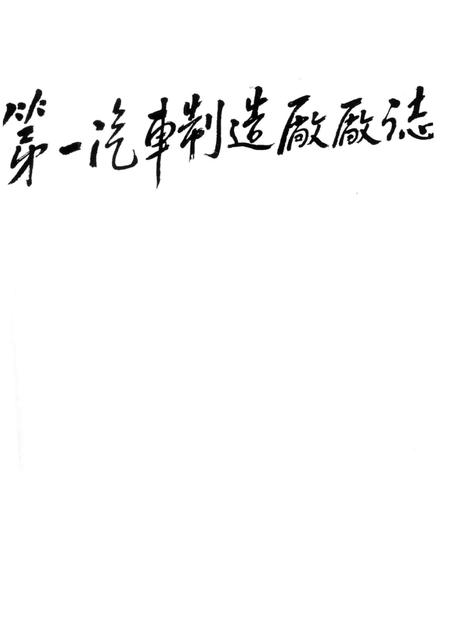 第一汽車制造廠廠誌